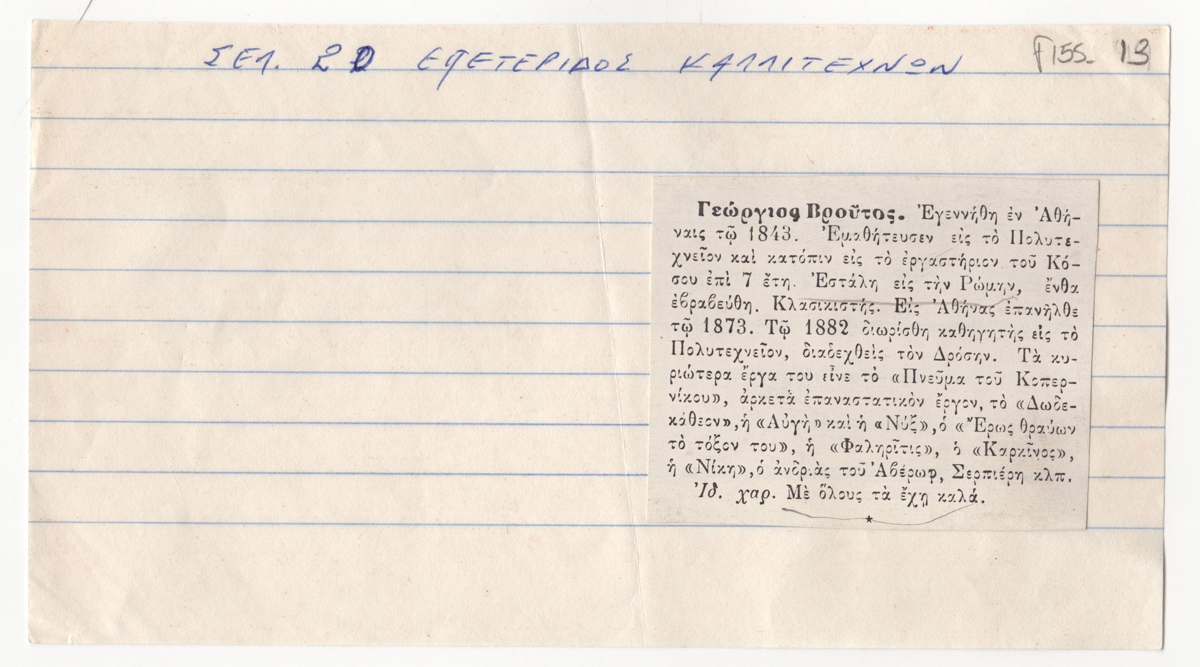 ΣΕΛ. 20 ΕΦΕΤΕΡΙΔΟΣ ΚΑΛΛΙΤΕΧΝΩΝ
F155- 13
Γεώργιος Βροῦτος. Ἐγεννήθη ἐν Ἀθή-
ναις τῷ 1843. Ἐμαθήτευσεν εἰς τὸ Πολυτε-
χνεῖον καὶ κατόπιν εἰς τὸ ἐργαστήριον τοῦ Κό-
σου ἐπὶ 7 ἔτη. Ἐστάλη εἰς τὴν Ρώμην, ἔνθα
ἐβραβεύθη. Κλασικιστής. Εἰς Ἀθήνας ἐπανῆλθε
τῷ 1873. Τῷ 1882 διωρίσθη καθηγητὴς εἰς τὸ
Πολυτεχνεῖον, διαδεχθεὶς τὸν Δρόσην. Τὰ κυ-
ριώτερα ἔργα του εἶνε τὸ «Πνεῦμα τοῦ Κοπερ-
νίκου», ἀρκετὰ ἐπαναστατικὸν ἔργον, τὸ «Δωδε-
κάθεον», ἡ «Αὐγὴ» καὶ ἡ «Νύξ», ὁ «Ἔρως θραύων
τὸ τόξον του», ἡ «Φαληρῖτις», ὁ «Καρκῖνος»,
ἡ «Νίκη», ὁ ἀνδριὰς τοῦ Ἀβέρωφ, Σερπιέρη κλπ.
Ἰδ. χαρ. Μὲ ὅλους τὰ ἔχῃ καλά.
*